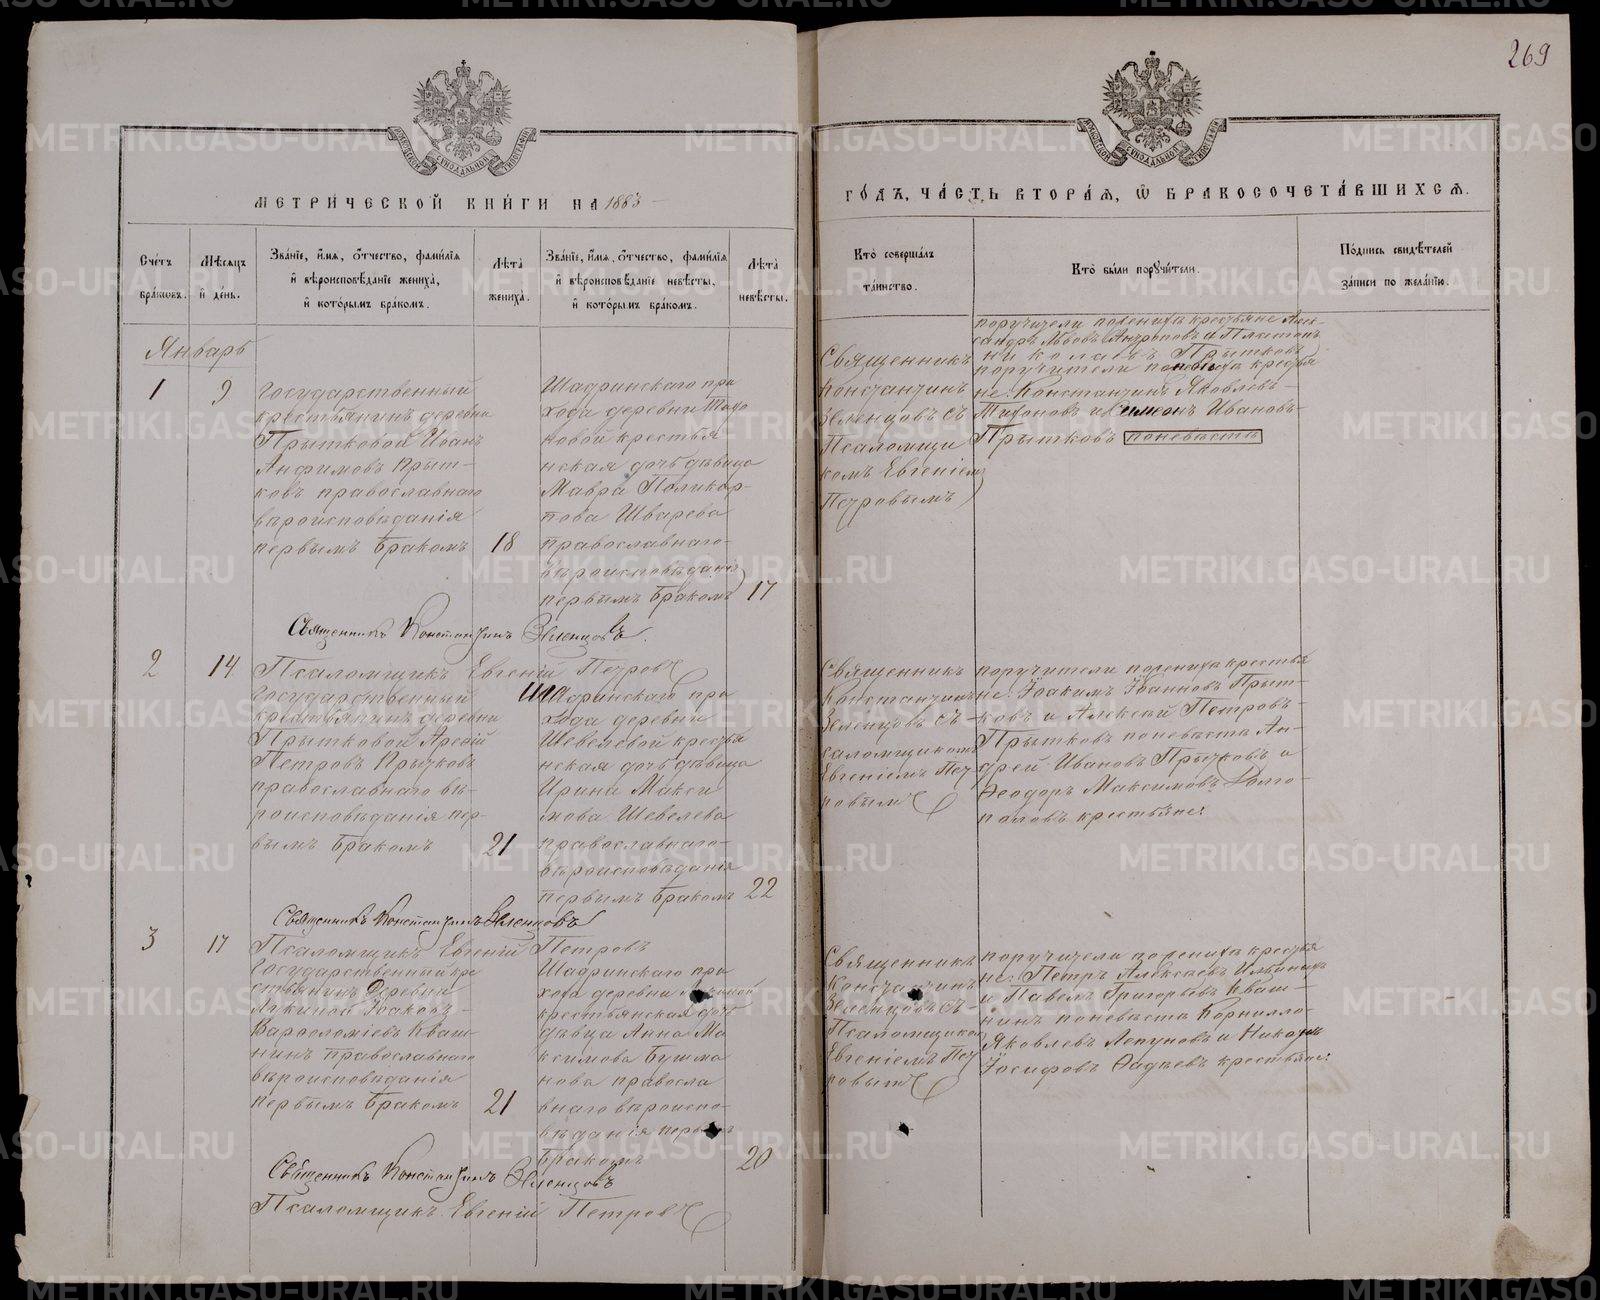 269
МЕТРИ́ЧЕСКОЙ КНИ́ГИ НА 1883
ГО́ДЪ, ЧА́СТЬ ВТОРА́Я, Ѡ БРАКОСОЧЕТА́ВШИХСЯ.
Счетъ браковъ.
Мѣсяцъ и день.
Зва́нїе, и҆́мя, ѻ҆́тчество, фами́лїя и҆ вѣроисповѣ́данїе жениха̀, и҆ кото́рымъ бра́комъ.
Лѣта̀ жениха̀.
Зва́нїе, и҆́мя, ѻ҆́тчество, фами́лїя и҆ вѣроисповѣ́данїе невѣ́сты, и҆ кото́рымъ бра́комъ.
Лѣта̀ невѣ́сты.
Кто̀ соверша́лъ та́инство.
Кто̀ бы́ли поручи́тели.
По́дпись свидѣ́телей за́писи по жела́нїю.
Январь
1
9
Государственный
крестьянинъ деревни
Прытковой Иванъ
Анфимовъ Прыт-
ковъ православнаго
вѣроисповѣданія
первымъ бракомъ
18
Шадринскаго при
хода деревни
новой крестья
нская дочь дѣвица
Мавра Поликар-
пова Шварева
православнаго
вѣроисповѣданія
первымъ бракомъ
17
Священникъ
Константинъ
Зеленцовъ съ
Псаломщи
комъ Евгеніем
Петровымъ
поручители по женихѣ крестьяне Алек
сандръ Львовъ и Платонъ
Николаевъ Прытковъ
поручители по невѣстѣ крестья
не: Константинъ Яковлевъ
Тихоновъ и Симеонъ Ивановъ
Прытковъ поневѣстѣ
Священникъ Константинъ Зеленцовъ.
Псаломщикъ Евгеній Петровъ
2
14
Государственный
крестьянинъ деревни
Прытковой Арсній
Петровъ Прытковъ
православнаго вѣ-
роисповѣданія пер-
вымъ бракомъ
21
Шадринскаго при
хода деревни
Шевелевой крестья
нская дочь дѣвица
Ирина Макси
мова Шевелева
православнаго
вѣроисповѣданія
первымъ бракомъ
22
Священникъ
Константинъ
Зеленцовъ съ
саломщикомъ
Евгеніемъ Пет
ровымъ
поручители по женихѣ крестья
не: Іоакимъ Іоанновъ Прыт-
ковъ и Алексѣй Петровъ
Прытковъ по невѣстѣ Ан-
дрей Ивановъ Прытковъ и
Ѳеодоръ Максимовъ Долго-
половъ крестьяне:
Священникъ Константинъ Зеленцовъ
Псаломщикъ Евгеній Петровъ
3
17
Государственный кре
стьянинъ Деревни
Лукиной Іоаковъ
Варѳоломѣевъ Кваш-
нинъ православнаго
вѣроисповѣданія
первымъ бракомъ
21
Шадринскаго при
хода деревни
крестьянская дочь
дѣвица Анна Ма
ксимова Бушма
нова правосла
внаго вѣроиспо-
вѣданія первымъ
бракомъ
20
Священникъ
Константинъ
Зеленцовъ съ
Псаломщиком
Евгеніемъ Пет
ровымъ
поручители по женихѣ крестья
не: Петръ Алексѣевъ Ильиныхъ
и Павелъ Григорьевъ Кваш-
нинъ по невѣстѣ Корнилло
Яковлевъ Лепуновъ и Никонъ
Іосифовъ Фадѣевъ крестьяне:
Священникъ Константинъ Зеленцовъ
Псаломщикъ Евгеній Петровъ
METRIKI.GASO-URAL.RU